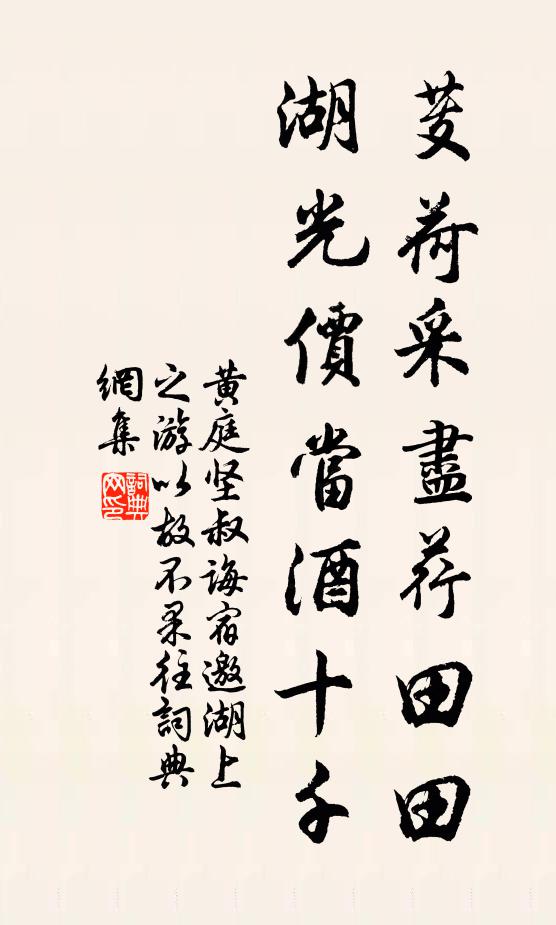 芰荷采盡荇田田
湖光價當酒十千
黄庭坚叔诲宿邀湖上
之游以故不果往詞典
網集
詞典
网印